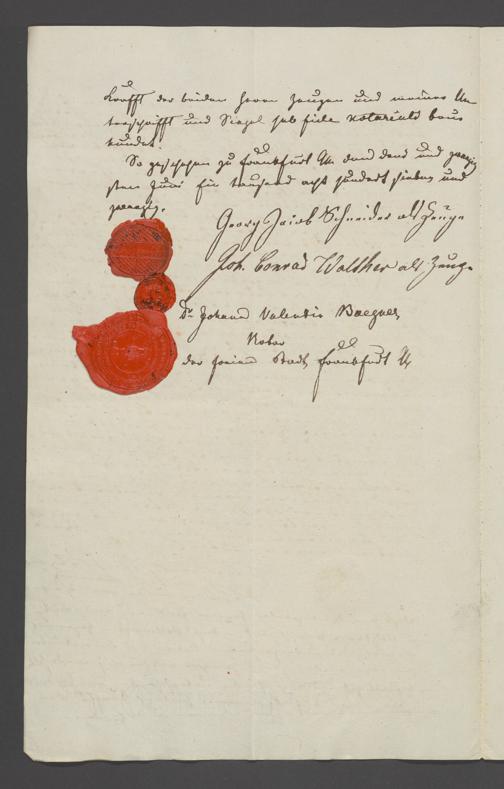 Krafft der beiden Herrn Zeugen und meiner Un
terschrifft und Siegel sub fide notariali beur
kundet.
So geschehen zu Frankfurt den und zwanzig
sten Juni Ein tausend acht hundert sieben und
zwanzig.
Georg Jacob Schneider als Zeuge
Joh. Conrad Walther als Zeuge
Dr Johann Valentin
Notar
der freien Stadt Frankfurt